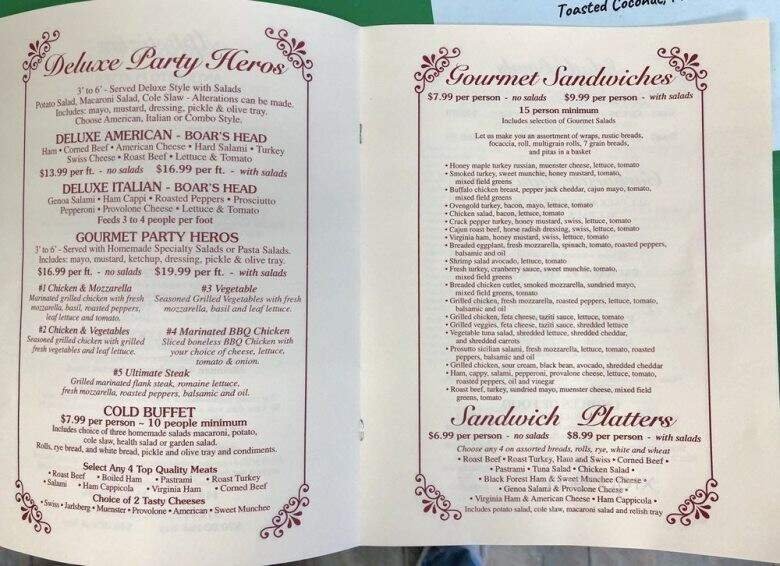 Toasted Coconut,
Deluxe Party Heros
3' to 6' - Served Deluxe Style with Salads
Potato Salad, Macaroni Salad, Cole Slaw - Alterations can be made.
Includes: mayo, mustard, dressing, pickle & olive tray.
Choose American, Italian or Combo Style.
DELUXE AMERICAN - BOAR'S HEAD
Ham • Corned Beef • American Cheese • Hard Salami • Turkey
Swiss Cheese • Roast Beef • Lettuce & Tomato
$13.99 per ft. - no salads $16.99 per ft. - with salads
DELUXE ITALIAN - BOAR'S HEAD
Genoa Salami • Ham Cappi • Roasted Peppers • Prosciutto
Pepperoni • Provolone Cheese • Lettuce & Tomato
Feeds 3 to 4 people per foot
GOURMET PARTY HEROS
3' to 6' - Served with Homemade Specialty Salads or Pasta Salads.
Includes: mayo, mustard, ketchup, dressing, pickle & olive tray.
$16.99 per ft. - no salads $19.99 per ft. - with salads
#1 Chicken & Mozzarella
Marinated grilled chicken with fresh
mozzarella, basil, roasted peppers,
leaf lettuce and tomato.
#2 Chicken & Vegetables
Seasoned grilled chicken with grilled
fresh vegetables and leaf lettuce.
#3 Vegetable
Seasoned Grilled Vegetables with fresh
mozzarella, basil and leaf lettuce.
#4 Marinated BBQ Chicken
Sliced boneless BBQ Chicken with
your choice of cheese, lettuce,
tomato & onion.
#5 Ultimate Steak
Grilled marinated flank steak, romaine lettuce,
fresh mozzarella, roasted peppers, balsamic and oil.
COLD BUFFET
$7.99 per person ~ 10 people minimum
Includes choice of three homemade salads macaroni, potato,
cole slaw, health salad or garden salad.
Rolls, rye bread, and white bread, pickle and olive tray and condiments.
Select Any 4 Top Quality Meats
• Roast Beef • Boiled Ham • Pastrami • Roast Turkey
• Salami • Ham Cappicola • Virginia Ham • Corned Beef
Choice of 2 Tasty Cheeses
• Swiss • Jarlsberg • Muenster • Provolone • American • Sweet Munchee
Gourmet Sandwiches
$7.99 per person - no salads $9.99 per person - with salads
15 person minimum
Includes selection of Gourmet Salads
Let us make you an assortment of wraps, rustic breads,
focaccia, roll, multigrain rolls, 7 grain breads,
and pitas in a basket
• Honey maple turkey russian, muenster cheese, lettuce, tomato
• Smoked turkey, sweet munchie, honey mustard, tomato,
mixed field greens
• Buffalo chicken breast, pepper jack cheddar, cajun mayo, tomato,
mixed field greens
• Ovengold turkey, bacon, mayo, lettuce, tomato
• Chicken salad, bacon, lettuce, tomato
• Crack pepper turkey, honey mustard, swiss, lettuce, tomato
• Cajun roast beef, horse radish dressing, swiss, lettuce, tomato
• Virginia ham, honey mustard, swiss, lettuce, tomato
• Breaded eggplant, fresh mozzarella, spinach, tomato, roasted peppers,
balsamic and oil
• Shrimp salad avocado, lettuce, tomato
• Fresh turkey, cranberry sauce, sweet munchie, tomato,
mixed field greens
• Breaded chicken cutlet, smoked mozzarella, sundried mayo,
mixed field greens, tomato
• Grilled chicken, fresh mozzarella, roasted peppers, lettuce, tomato,
balsamic and oil
• Grilled chicken, feta cheese, taziti sauce, lettuce, tomato
• Grilled veggies, feta cheese, taziti sauce, shredded lettuce
• Vegetable tuna salad, shredded lettuce, shredded cheddar,
and shredded carrots
• Prosutto sicilian salami, fresh mozzarella, lettuce, tomato, roasted
peppers, balsamic and oil
• Grilled chicken, sour cream, black bean, avocado, shredded cheddar
• Ham, cappy, salami, pepperoni, provolone cheese, lettuce, tomato,
roasted peppers, oil and vinegar
• Roast beef, turkey, sundried mayo, muenster cheese, mixed field
greens, tomato
Sandwich Platters
$6.99 per person - no salads $8.99 per person - with salads
Choose any 4 on assorted breads, rolls, rye, white and wheat
• Roast Beef • Roast Turkey, Ham and Swiss • Corned Beef •
• Pastrami • Tuna Salad • Chicken Salad •
• Black Forest Ham & Sweet Munchee Cheese •
• Genoa Salami & Provolone Cheese •
• Virginia Ham & American Cheese • Ham Cappicola •
Includes potato salad, cole slaw, macaroni salad and relish tray